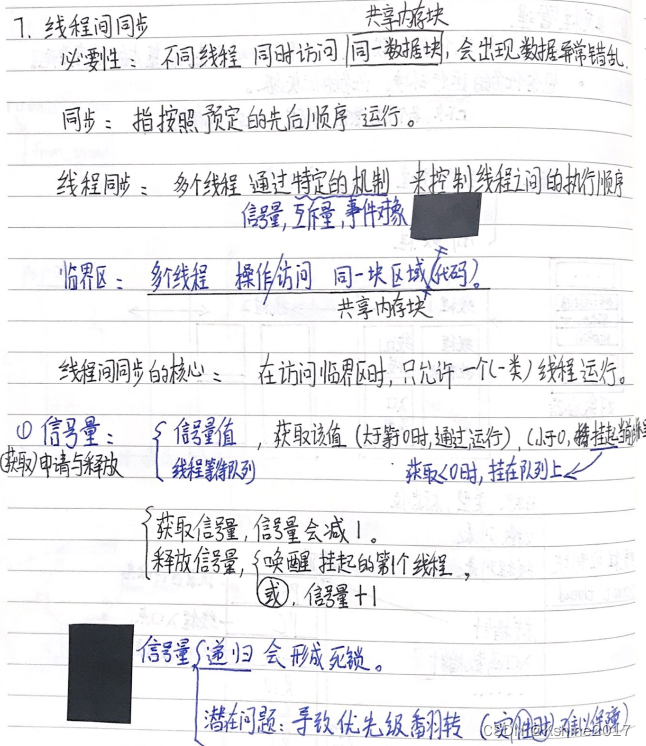 共享内存块
7. 线程间同步
必要性：不同线程 同时访问 同一数据块，会出现数据异常错乱.
同步：指按照预定的先后顺序 运行。
线程同步：多个线程 通过特定的机制 来控制线程之间的执行顺序
信号量，互斥量，事件对象
临界区：多个线程 操作/访问 同一块区域(代码)。
共享内存块
线程间同步的核心：在访问临界区时，只允许一个(一类)线程运行。
① 信号量：信号量值，获取该值(大于等0时,通过,运行)，(小于0，挂起
(获取)申请与释放 线程等待队列 获取<0时，挂在队列上
获取信号量，信号量会减1。
释放信号量，唤醒 挂起的第1个线程，
或，信号量+1
信号量 递归 会形成死锁。
潜在问题：导致优先级翻转 (实时性 难以保障)
CSDN @Xshine2017